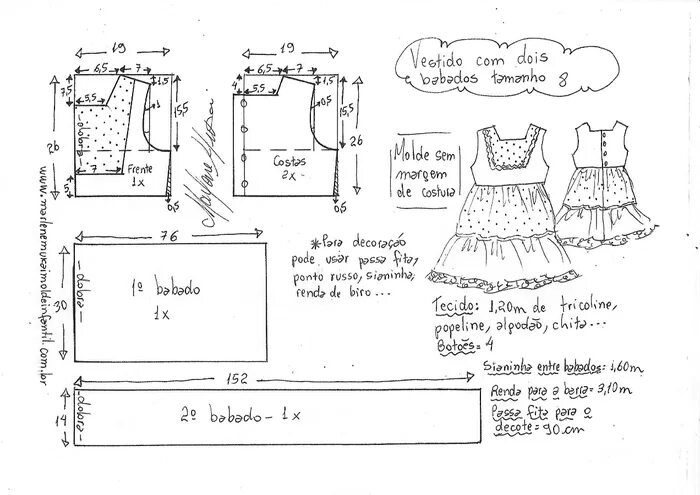 Vestido com dois
babados tamanho 8
19
6,5
7
1,5
7,5
5,5
3
15,5
26
dobra
7
Frente
1x
5
0,5
19
6,5
7
1,5
4
5,5
0,5
15,5
26
Costas
2x
0,5
Molde sem
margem
de costura
www.marlenemukaimoldeinfantil.com.br
76
30
dobra
1º babado
1x
*Para decoração
pode usar passa fita,
ponto russo, sianinha,
renda de biro...
Tecido: 1,20m de tricoline,
popeline, algodão, chita...
Botões=4
Sianinha entre babados: 1,60m
Renda para a barra= 3,10m
Passa fita para o
decote= 90cm
152
14
dobra
2º babado - 1x